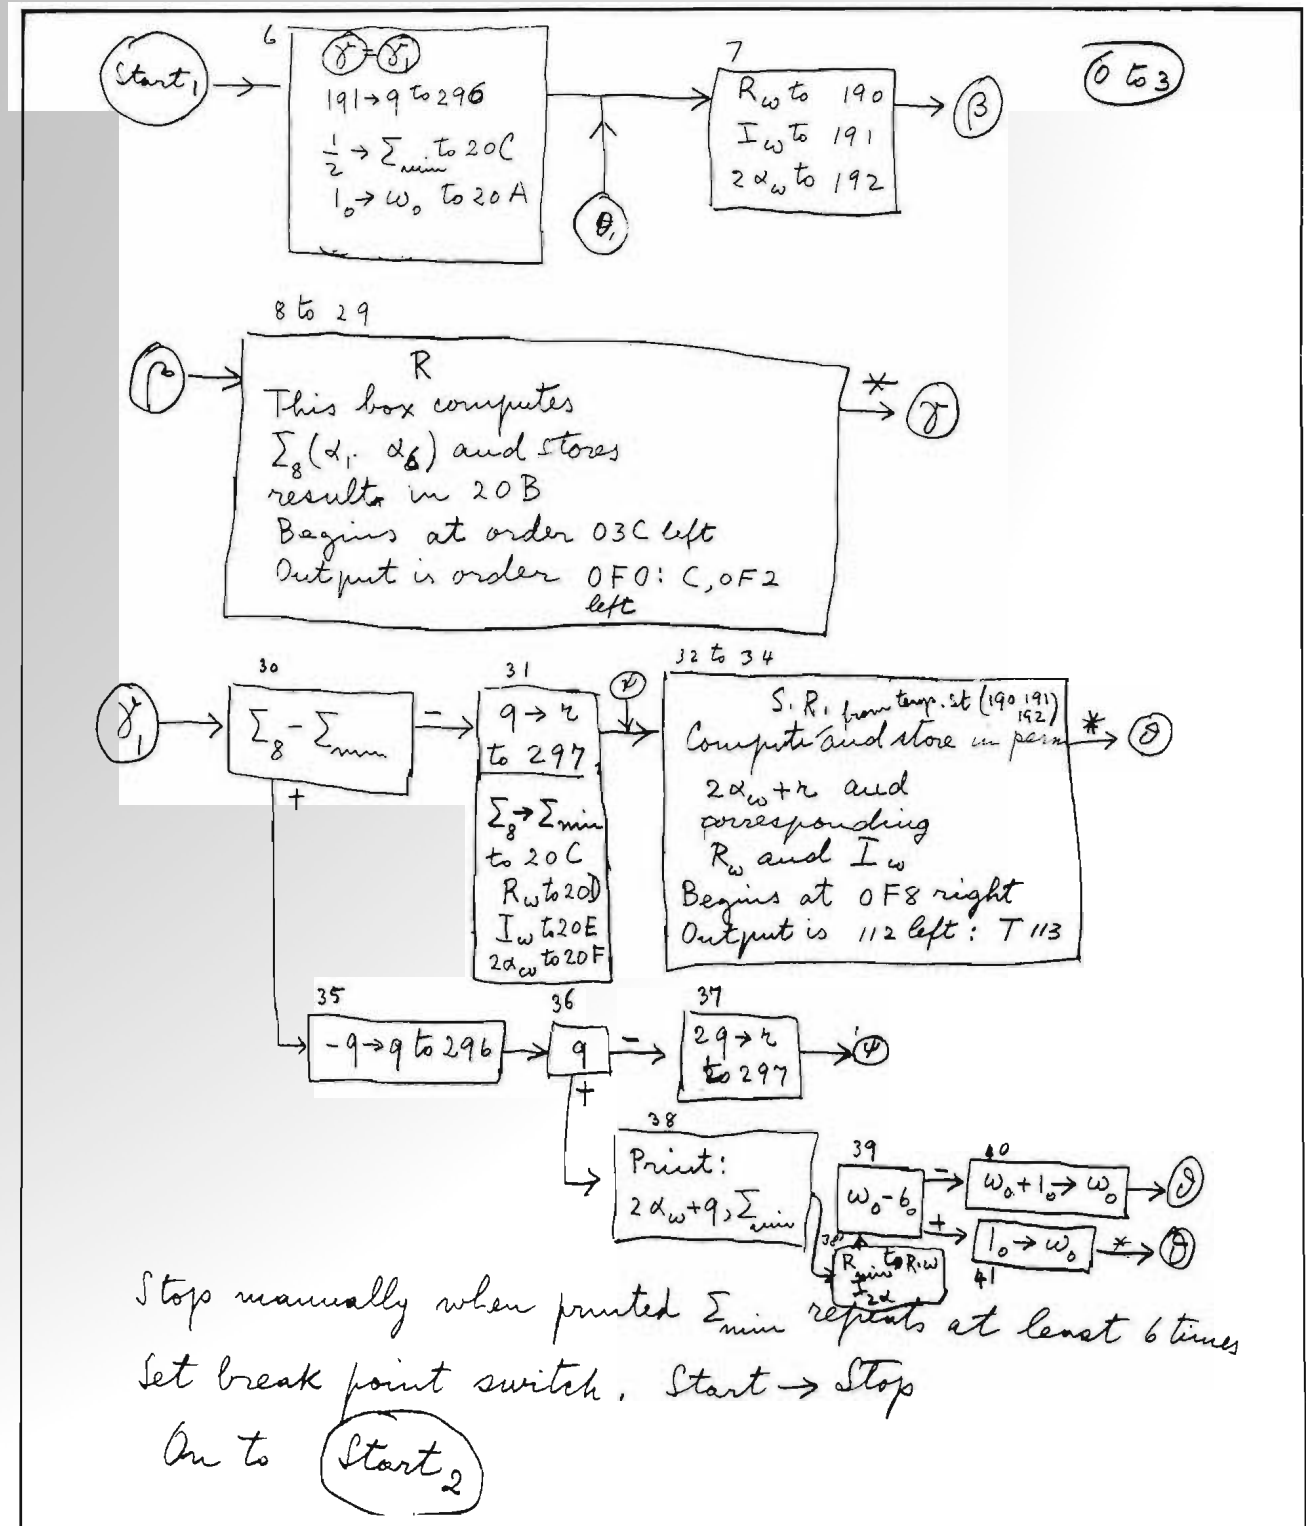 0 to 3
Start₁
6
γ = γ₁
191 → q to 296
½ → Σmin to 20C
1₀ → ω₀ to 20A
θ₁
7
Rω to 190
Iω to 191
2αω to 192
β
8 to 29
R
This box computes
Σ₈(α₁. α₆) and stores
results in 20B
Begins at order 03C left
Output is order 0F0: C, 0F2
left
*
γ
γ₁
30
Σ₈ - Σmin
-
+
31
q → r
to 297
Σ₈ → Σmin
to 20C
Rω to 20D
Iω to 20E
2αω to 20F
ψ
32 to 34
S.R. from temp. st (190 191)
192)
Compute and store in perm
2αω + r and
corresponding
Rω and Iω
Begins at 0F8 right
Output is 112 left: T 113
*
θ
35
-q → q to 296
36
q
-
+
37
2q → r
to 297
ψ
38
Print:
2αω + q, Σmin
39
ω₀ - 6₀
-
+
40
ω₀ + 1₀ → ω₀
θ
1₀ → ω₀
41
*
θ
38'
Rmin to R,ω
I
2α
Stop manually when printed Σmin repeats at least 6 times
Set break point switch. Start → Stop
On to Start₂